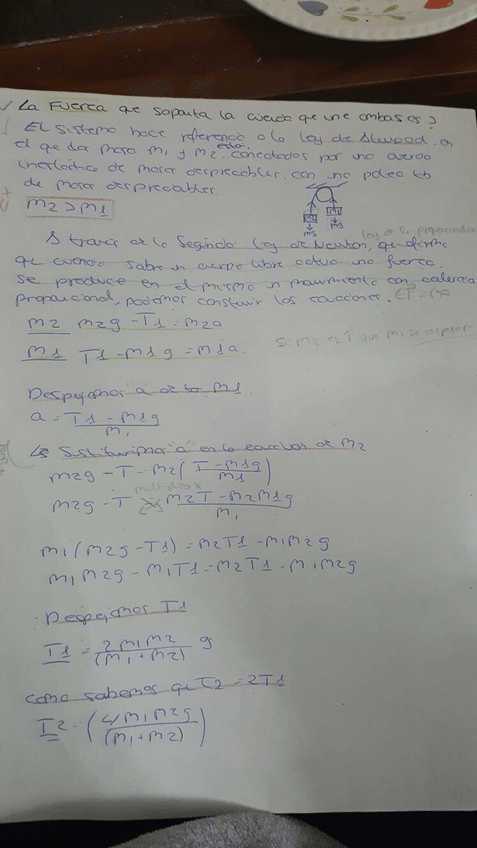 La Fuerza que soporta la cuerda que une ambas es?
El sistema hace referencia a la ley de Atwood, en
el que dos masa m1 y m2 están conectados por una cuerda
inextensible de masa despreciables con una polea tb
de masa despreciables.
m2 > m1
A traves de la Segunda Ley de Newton, que afirma
que cuando sobre un cuerpo libre actua una fuerza
se produce en el mismo un movimiento con
proporcional, podemos construir las ecuaciones.
m2 m2g - T1 = m2a
m1 T1 - m1g = m1a
Despejamos a de la m1
a = T1 - m1g / m1
Sustituimos a en la ecuacion de m2
m2g - T = m2 (T - m1g / m1)
m2g - T m2T - m2m1g / m1
m1 (m2g - T1) = m2T1 - m1m2g
m1m2g - m1T1 = m2T1 - m1m2g
Despejamos T1
T1 = 2m1m2 / (m1+m2) g
como sabemos que T2 = 2T1
T2 = (4m1m2g / (m1+m2))